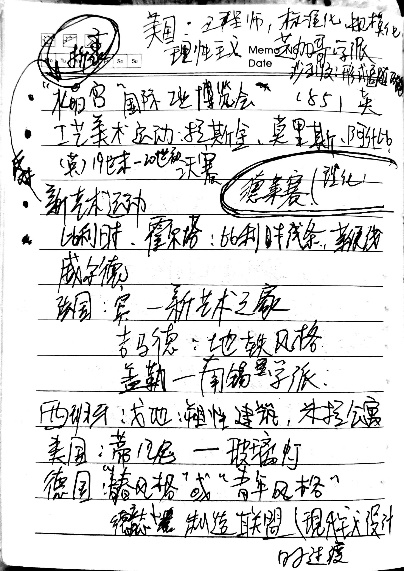 美国：工程师，标准化，规模化
理性主义 Memo 芝加哥学派
Date
"水晶宫"国际工业博览会 1851 英
工艺美术运动：拉斯金、莫里斯、阿什比
(英) 19世末-20世初 沃赛
反对
德莱赛(理化)
新艺术运动
比利时、霍尔塔：比利时线条，鞭线
威尔德
法国：宾—新艺术之家
吉马德：地铁风格
盖勒—南锡学派
西班牙：高地：塑性建筑，米拉公寓
美国：蒂凡尼—玻璃灯
德国"青风格"或"青年风格"
德意志 制造联盟(现代主义设计
的过渡